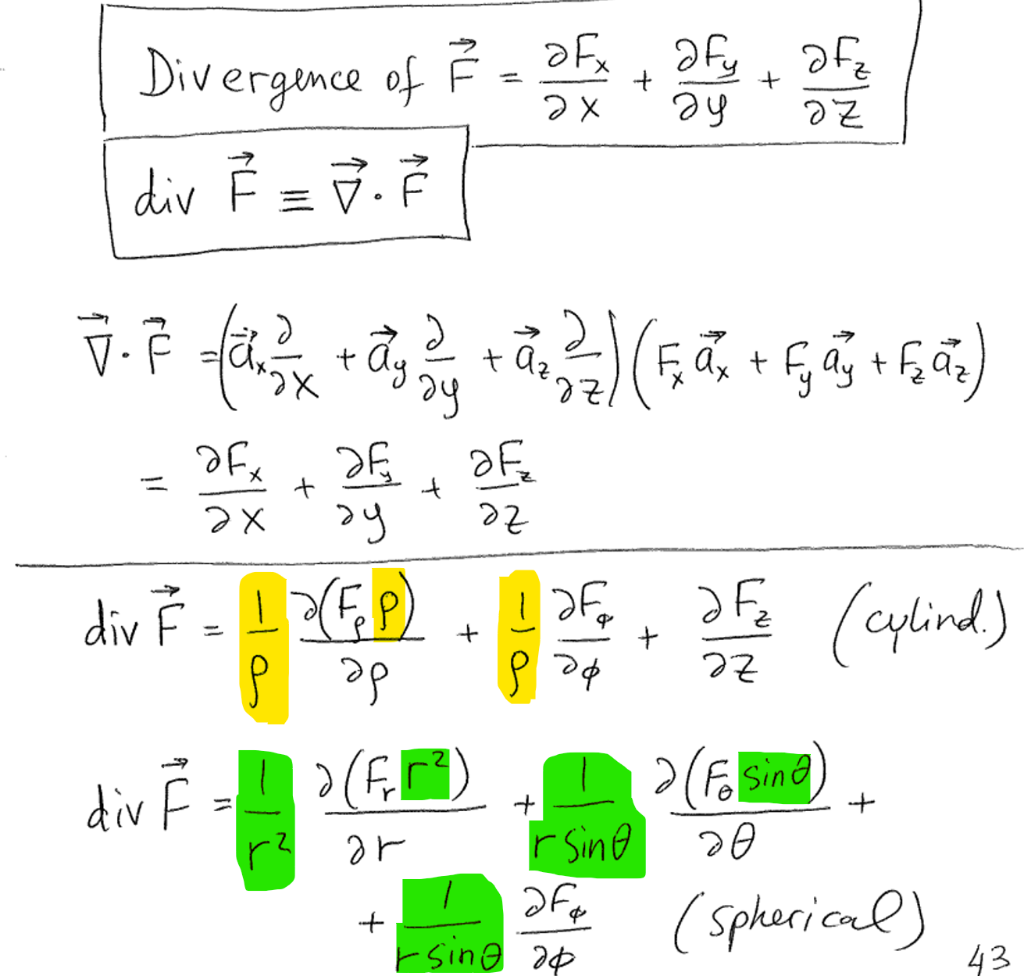 Divergence of F⃗ = ∂Fₓ/∂x + ∂F_y/∂y + ∂F_z/∂z
div F⃗ ≡ ∇⃗ · F⃗
∇⃗ · F⃗ = (a⃗ₓ ∂/∂x + a⃗_y ∂/∂y + a⃗_z ∂/∂z) (Fₓ a⃗ₓ + F_y a⃗_y + F_z a⃗_z)
= ∂Fₓ/∂x + ∂F_y/∂y + ∂F_z/∂z
div F⃗ = 1/ρ ∂(F_ρ ρ)/∂ρ + 1/ρ ∂F_φ/∂φ + ∂F_z/∂z (cylind.)
div F⃗ = 1/r² ∂(F_r r²)/∂r + 1/(r sinθ) ∂(F_θ sinθ)/∂θ +
+ 1/(r sinθ) ∂F_φ/∂φ (spherical)
43